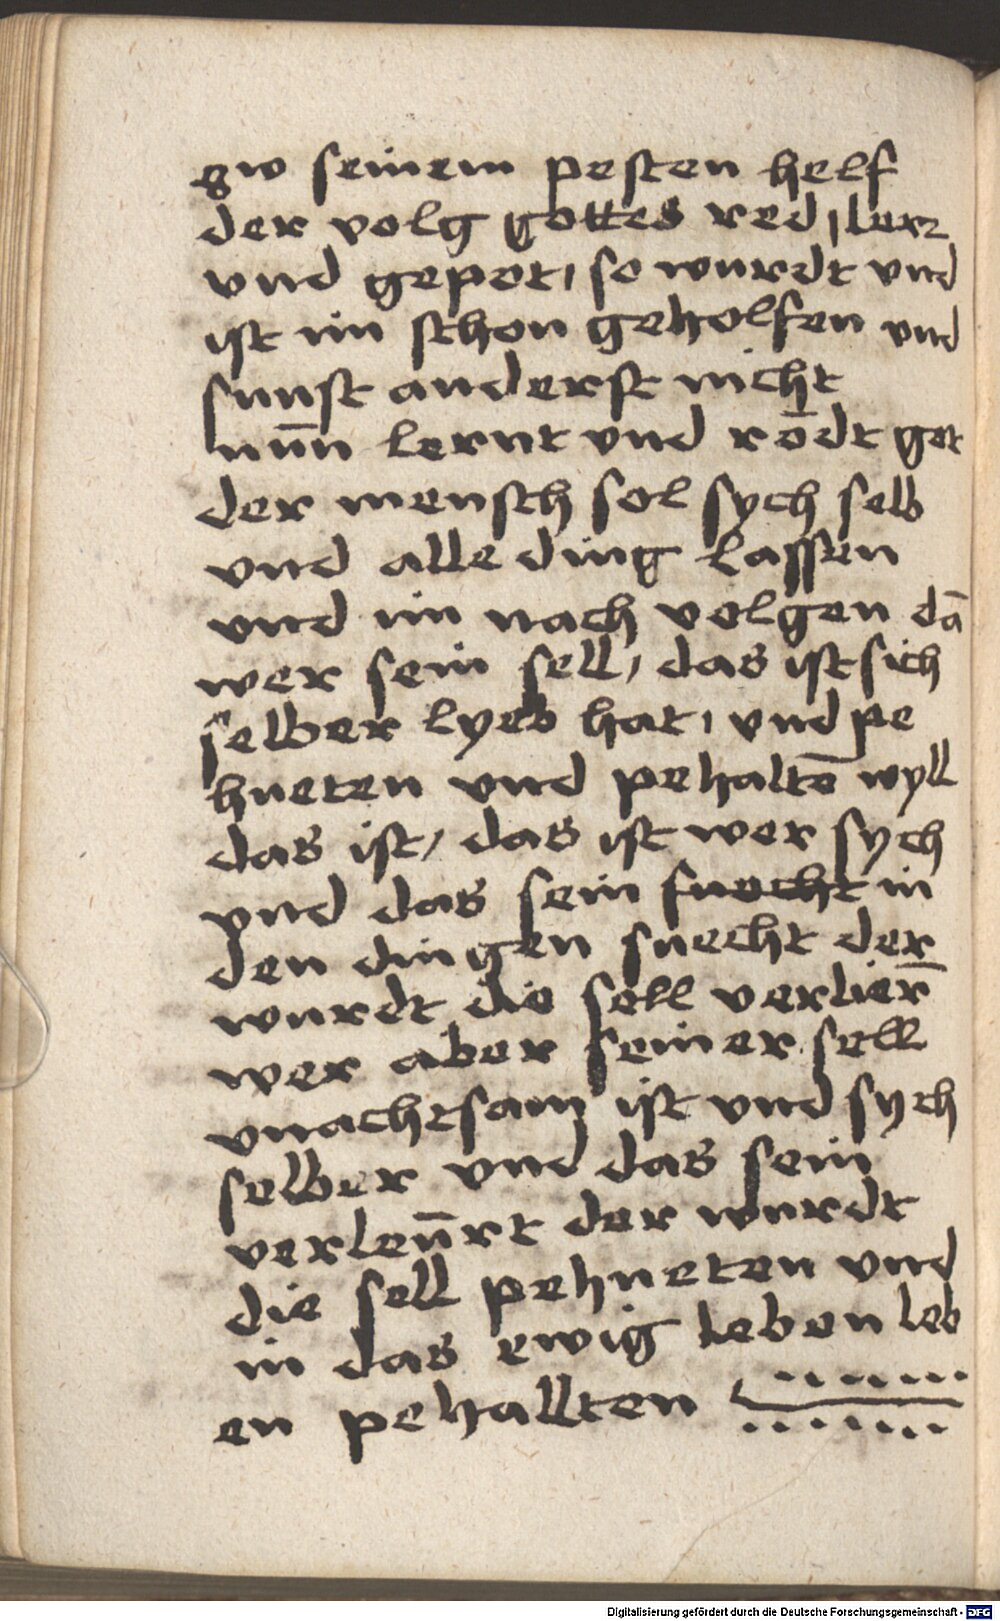 zw seinem pesten helf
der volg gottes red, ler
vnd gepot, so wurdt vnd
ist im schon geholfen vnd
sunst anderst nicht
nun̄ lernt vnd rōdt got
der mensch sol sych selb
vnd alle ding lassen
vnd im nach volgen dā
wer sein sell, das ist sich
selber lyeb hat, vnd pe
hueten vnd pehaltē wyll
das ist, das ist wer sych
vnd das sein suecht in
den dingen suecht der
wurdt die sell verlier̄
wer aber seiner sell
vnachtsam ist vnd sych
selber vnd das sein
verleūrt der wurdt
die sell pehueten vnd
in das ewig leben leb
en pehallten
Digitalisierung gefördert durch die Deutsche Forschungsgemeinschaft - DFG